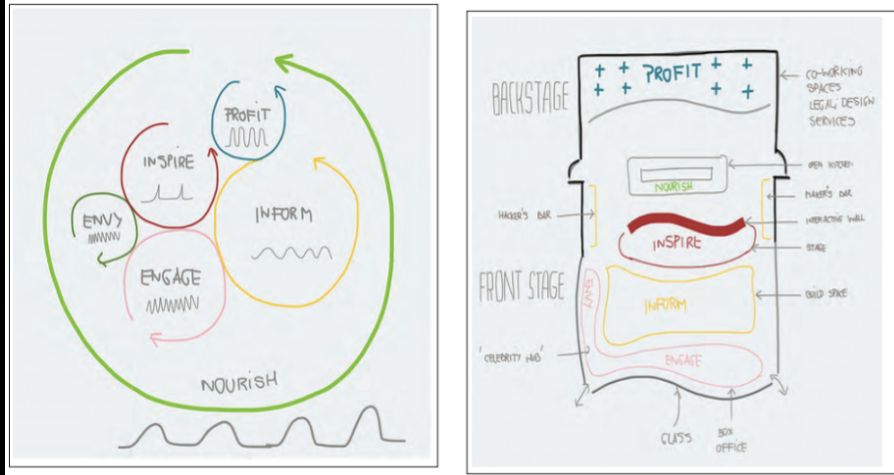 PROFIT
INSPIRE
ENVY
INFORM
ENGAGE
NOURISH
BACKSTAGE
PROFIT
CO-WORKING
SPACES
LEGAL, DESIGN
SERVICES
OPEN KITCHEN
NOURISH
HACKER'S BAR
MAKER'S BAR
INTERACTIVE WALL
INSPIRE
STAGE
FRONT STAGE
ENVY
INFORM
BUILD SPACE
'CELEBRITY HUB'
ENGAGE
GLASS
BOX
OFFICE